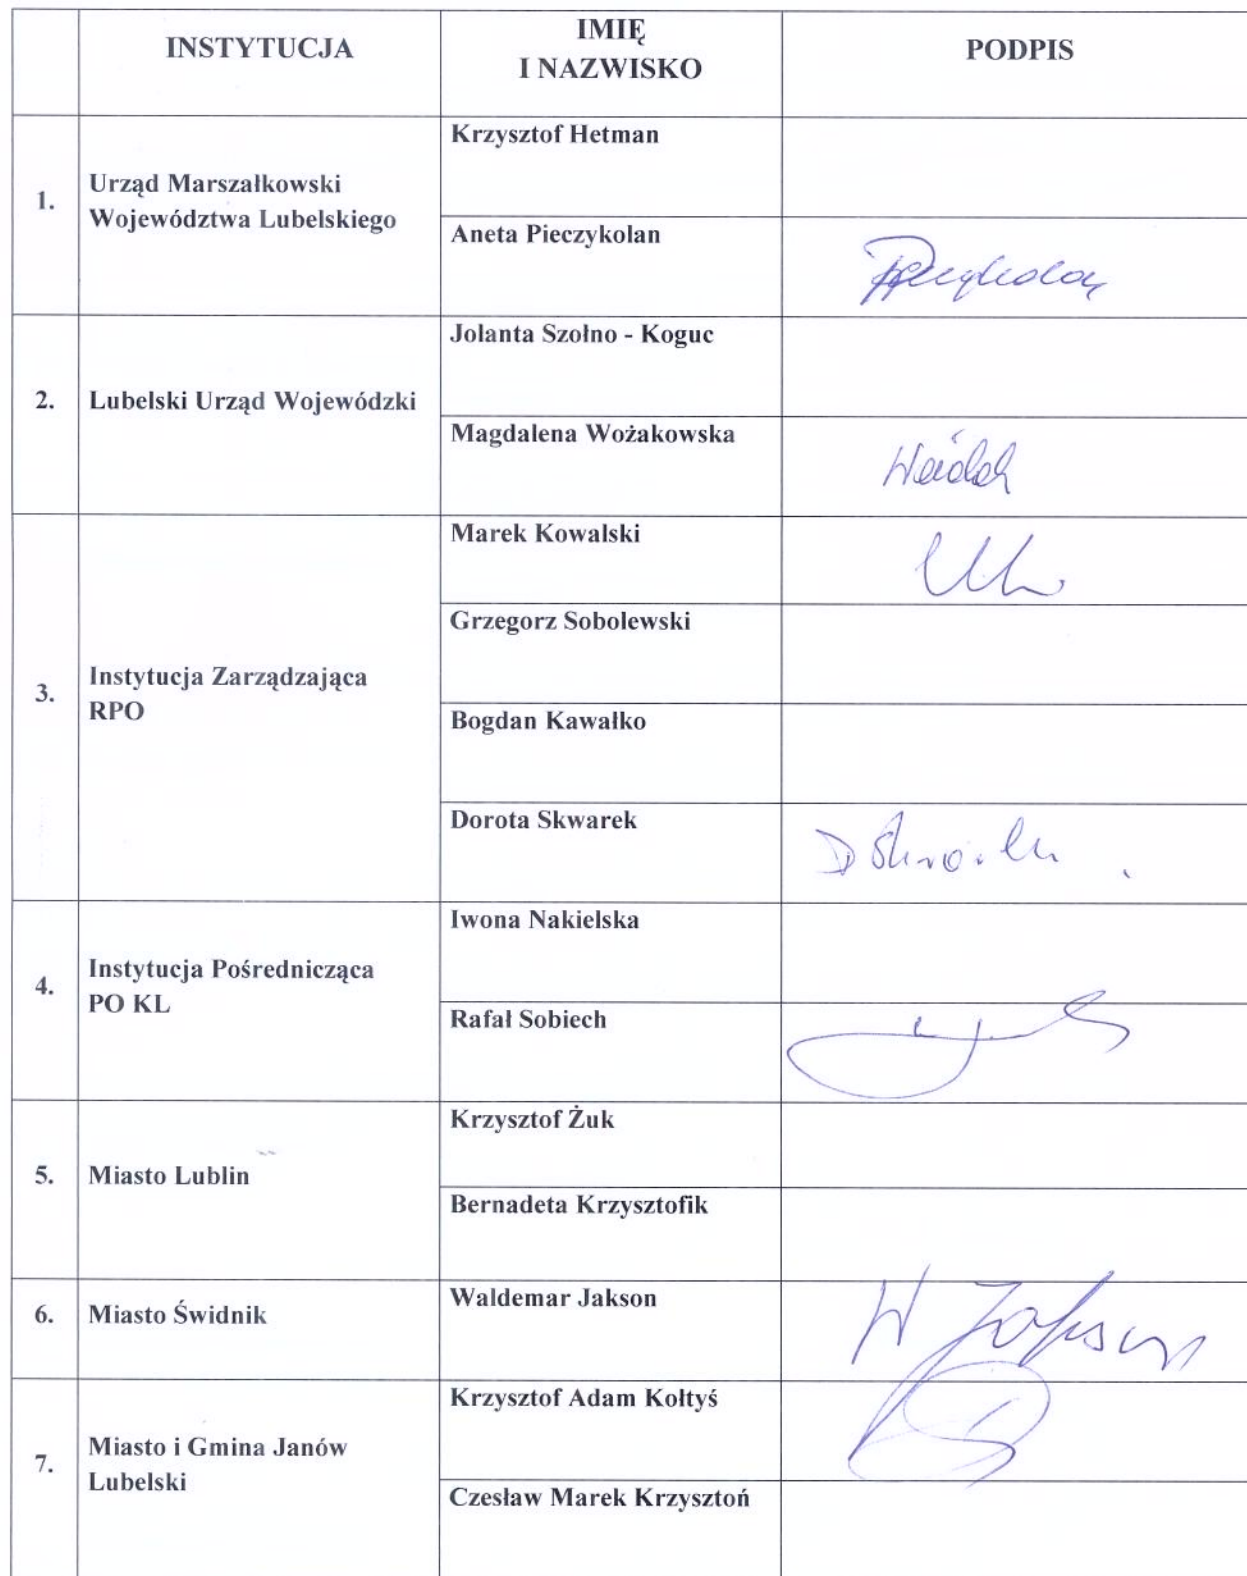 INSTYTUCJA
IMIĘ
I NAZWISKO
PODPIS
1.
Urząd Marszałkowski
Województwa Lubelskiego
Krzysztof Hetman
Aneta Pieczykolan
2.
Lubelski Urząd Wojewódzki
Jolanta Szołno - Koguc
Magdalena Wożakowska
3.
Instytucja Zarządzająca
RPO
Marek Kowalski
Grzegorz Sobolewski
Bogdan Kawałko
Dorota Skwarek
4.
Instytucja Pośrednicząca
PO KL
Iwona Nakielska
Rafał Sobiech
5.
Miasto Lublin
Krzysztof Żuk
Bernadeta Krzysztofik
6.
Miasto Świdnik
Waldemar Jakson
W Jakson
7.
Miasto i Gmina Janów
Lubelski
Krzysztof Adam Kołtyś
Czesław Marek Krzysztoń